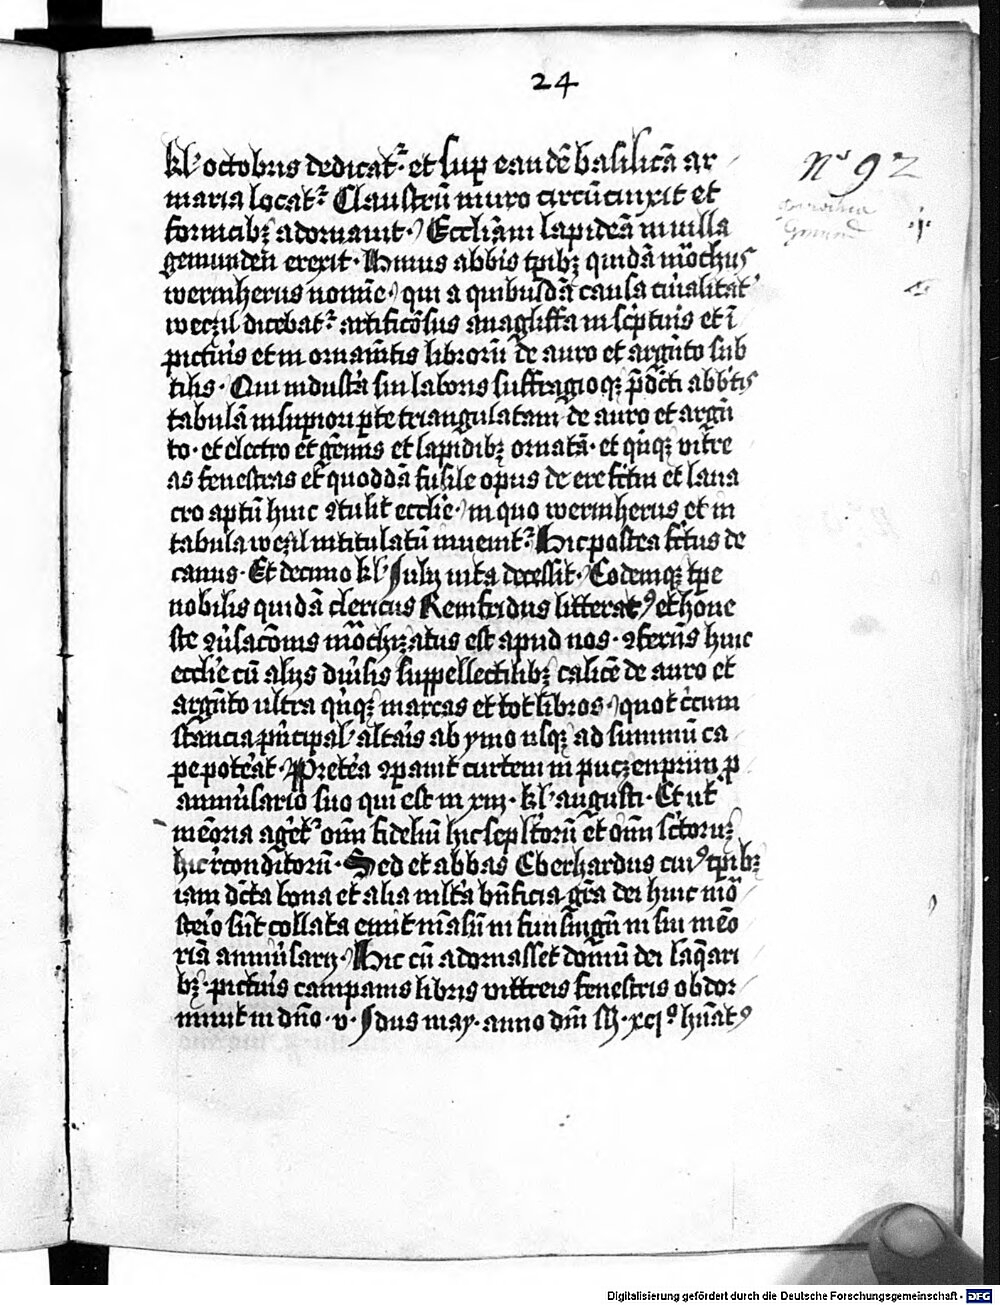 24
kl' octobris dedicat᷑. et sup eandē basilicā ar
maria locat᷑ Claustrū muro circūcinxit et
fornicibꝫ adornauit. Eccliam lapideā in villa
gemunden̄ erexit. Huius abbīs tpibꝫ quidā mōchus
wernherus nomīe, qui a quibusdā causa ciuilitat'
weczil dicebat᷑ artificōsus anagliffa in scptur̄is et ī
pictur̄is et in ornam̄tis librorū de auro et argn̄to sub
tilis. Qui industˀa sui laboris suffragio qꝫ p̄dcti abbˀtis
tabulā in supiori pte triangulatam de auro et argn̄
to. et electro et gēmis et lapidibꝫ ornatā. et qnqꝫ vitre
as fenestras et quoddā fusile opus de ere fctm et laua
cro aptū huic ꝯtulit ecclie. in quo wernherus et in
tabula weczil intitulatū inuenit᷑ Hic postea fctus de
canus. Et decimo kl' Julij vita decessit. Eodemqꝫ tpe
nobilis quidā clericus Remfridus litterat9 et hone
ste ꝯuˀsacōnis mōchizatus est apud nos. ꝯferēs huic
ecclie cū alijs diuˀsis suppellectilibꝫ calicē de auro et
argn̄to vltra qnqꝫ marcas et tot libros. quot cˀcum
stancia pncipal' altaˀis ab ymo usqꝫ ad summū ca
pe poteˀat. Preteˀa ꝯpauit curtem in puczenprun p
anniuˀsario suo qui est in xiij. kl' augusti. Et ut
mēoria aget᷑ omī fideliū hic sepltorū et omī sctoruꝫ
hic rconditorū. Sed et abbas Eberhardus cui9 tpibꝫ
iam dcta bona et alia mlta bnficia gra dei huic mō
sterio sūt collata emit māsū in funsingn̄ in sui mēo
riā anniuˀsarij. Hic cū adornasset domū dei laqari
bꝫ. picturˀis campanis libris vittreis fenestris obdor
miuit in dno. v. Jdus may. anno dni M. xcj° hn̄at9
Nr 92
Gmund